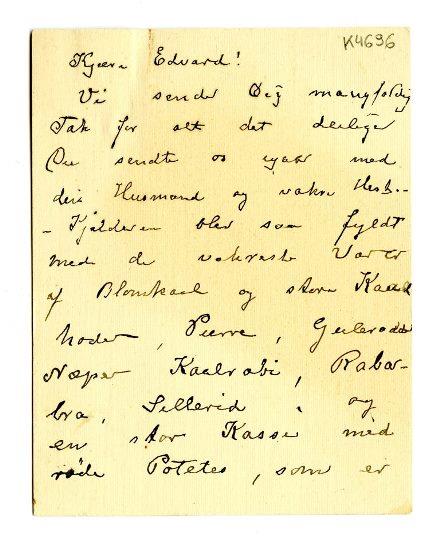 K4696
Kjære Edvard!
Vi sender Dig mangfoldig
Tak for alt det deilige
Du sendte os igaar med
din Husmand og vakre Hest. -
- Kjælderen blev saa fyldt
med de vakreste Varer
af Blomkaal og store Kaal
hoder, Purre, Gulerødder
Næper Kaalrabi, Rabar-
bra, Sellerid, og
en stor Kasse med
røde Potetes, som er